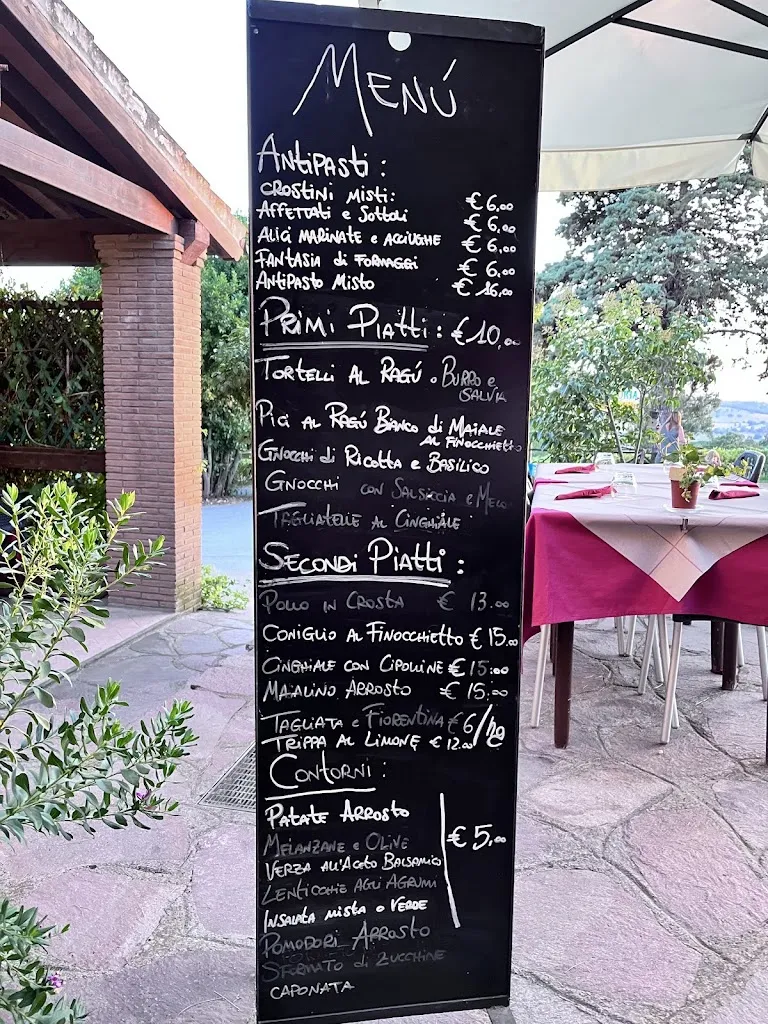 MENÚ
ANTIPASTI:
CROSTINI MISTI: € 6,00
AFFETTATI e SOTTOLI € 6,00
ALICI MARINATE e ACCIUGHE € 6,00
FANTASIA di FORMAGGI € 6,00
ANTIPASTO MISTO € 16,00
PRIMI PIATTI: € 10,00
TORTELLI AL RAGÚ o BURRO e
SALVIA
PICI AL RAGÚ BIANCO di MAIALE
AL FINOCCHIETTO
GNOCCHI di RICOTTA e BASILICO
GNOCCHI CON SALSICCIA e
TAGLIATELLE AL CINGHIALE
SECONDI PIATTI:
POLLO IN CROSTA € 13.00
CONIGLIO AL FINOCCHIETTO € 15.00
CINGHIALE CON CIPOLLINE € 15:00
MAIALINO ARROSTO € 15,00
TAGLIATA e FIORENTINA € 6/hg
TRIPPA AL LIMONE € 12.00
CONTORNI:
PATATE ARROSTO
€ 5,00
MELANZANE e OLIVE
VERZA ALL'ACETO BALSAMICO
LENTICCHIE AGLI AGRUMI
INSALATA MISTA o VERDE
POMODORI ARROSTO
SFORMATO di ZUCCHINE
CAPONATA